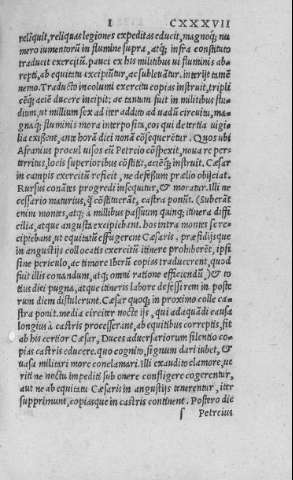 I CXXXVII
relĩquit, reliquas legiones expeditas educit, magnoq; nu
mero iumentorũ in flumine supra, atq; infra constituto
traducit exercitũ. pauci ex his militibus ui fluminis ab-
repti, ab equitatu excipiũtur, ac subleuãtur. interijt tamẽ
nemo. Traducto incolumi exercitu copias instruit, tripli
cẽq; aciẽ ducere incipit; ac tantum fuit in militibus stu-
dium, ut millium sex ad iter addito ad uadũ circuitu, ma-
gnaq; fluminis mora interposita, eos, qui de tertia uigi-
lia exissent, ante horã diei nonã cõsequerẽtur. Quos ubi
Afranius procul uisos cũ Petreio cõspexit, noua re per-
territus, locis superioribus cõstitit, aciẽq; instruit. Cæsar
in campis exercitũ reficit, ne defessum prælio obijciat.
Rursus conãtes progredi insequitur, & moratur. illi ne-
cessario maturius, q̃ cõstituerãt, castra ponũt. (Suberãt
enim montes, atq; à millibus passuum quinq; itinera diffi
cilia, atque angusta excipiebant. hos intra montes se re-
cipiebant, ut equitatũ effugerent Cæsaris. præsidijsque
in angustijs collocatis exercitũ itinere prohiberẽt, ipsi
sine periculo, ac timore Iberũ copias traducerent, quod
fuit illis conandum, atq; omni ratione efficiendũ) & to
tius diei pugna, atque itineris labore defessi rem in poste
rum diem distulerunt. Cæsar quoq; in proximo colle ca-
stra ponit. media circiter nocte ijs, qui adaquãdi causa
longius à castris processerant, ab equitibus correptis, fit
ab his certior Cæsar, Duces aduersariorum silentio co-
pias castris educere. quo cognito, signum dari iubet, &
uasa militari more conclamari. illi exaudito clamore, ue
riti ne noctu impediti sub onere confligere cogerentur,
aut ne ab equitatu Cæsaris in angustijs tenerentur, iter
supprimunt, copiasque in castris continent. Postero die
s Petreius